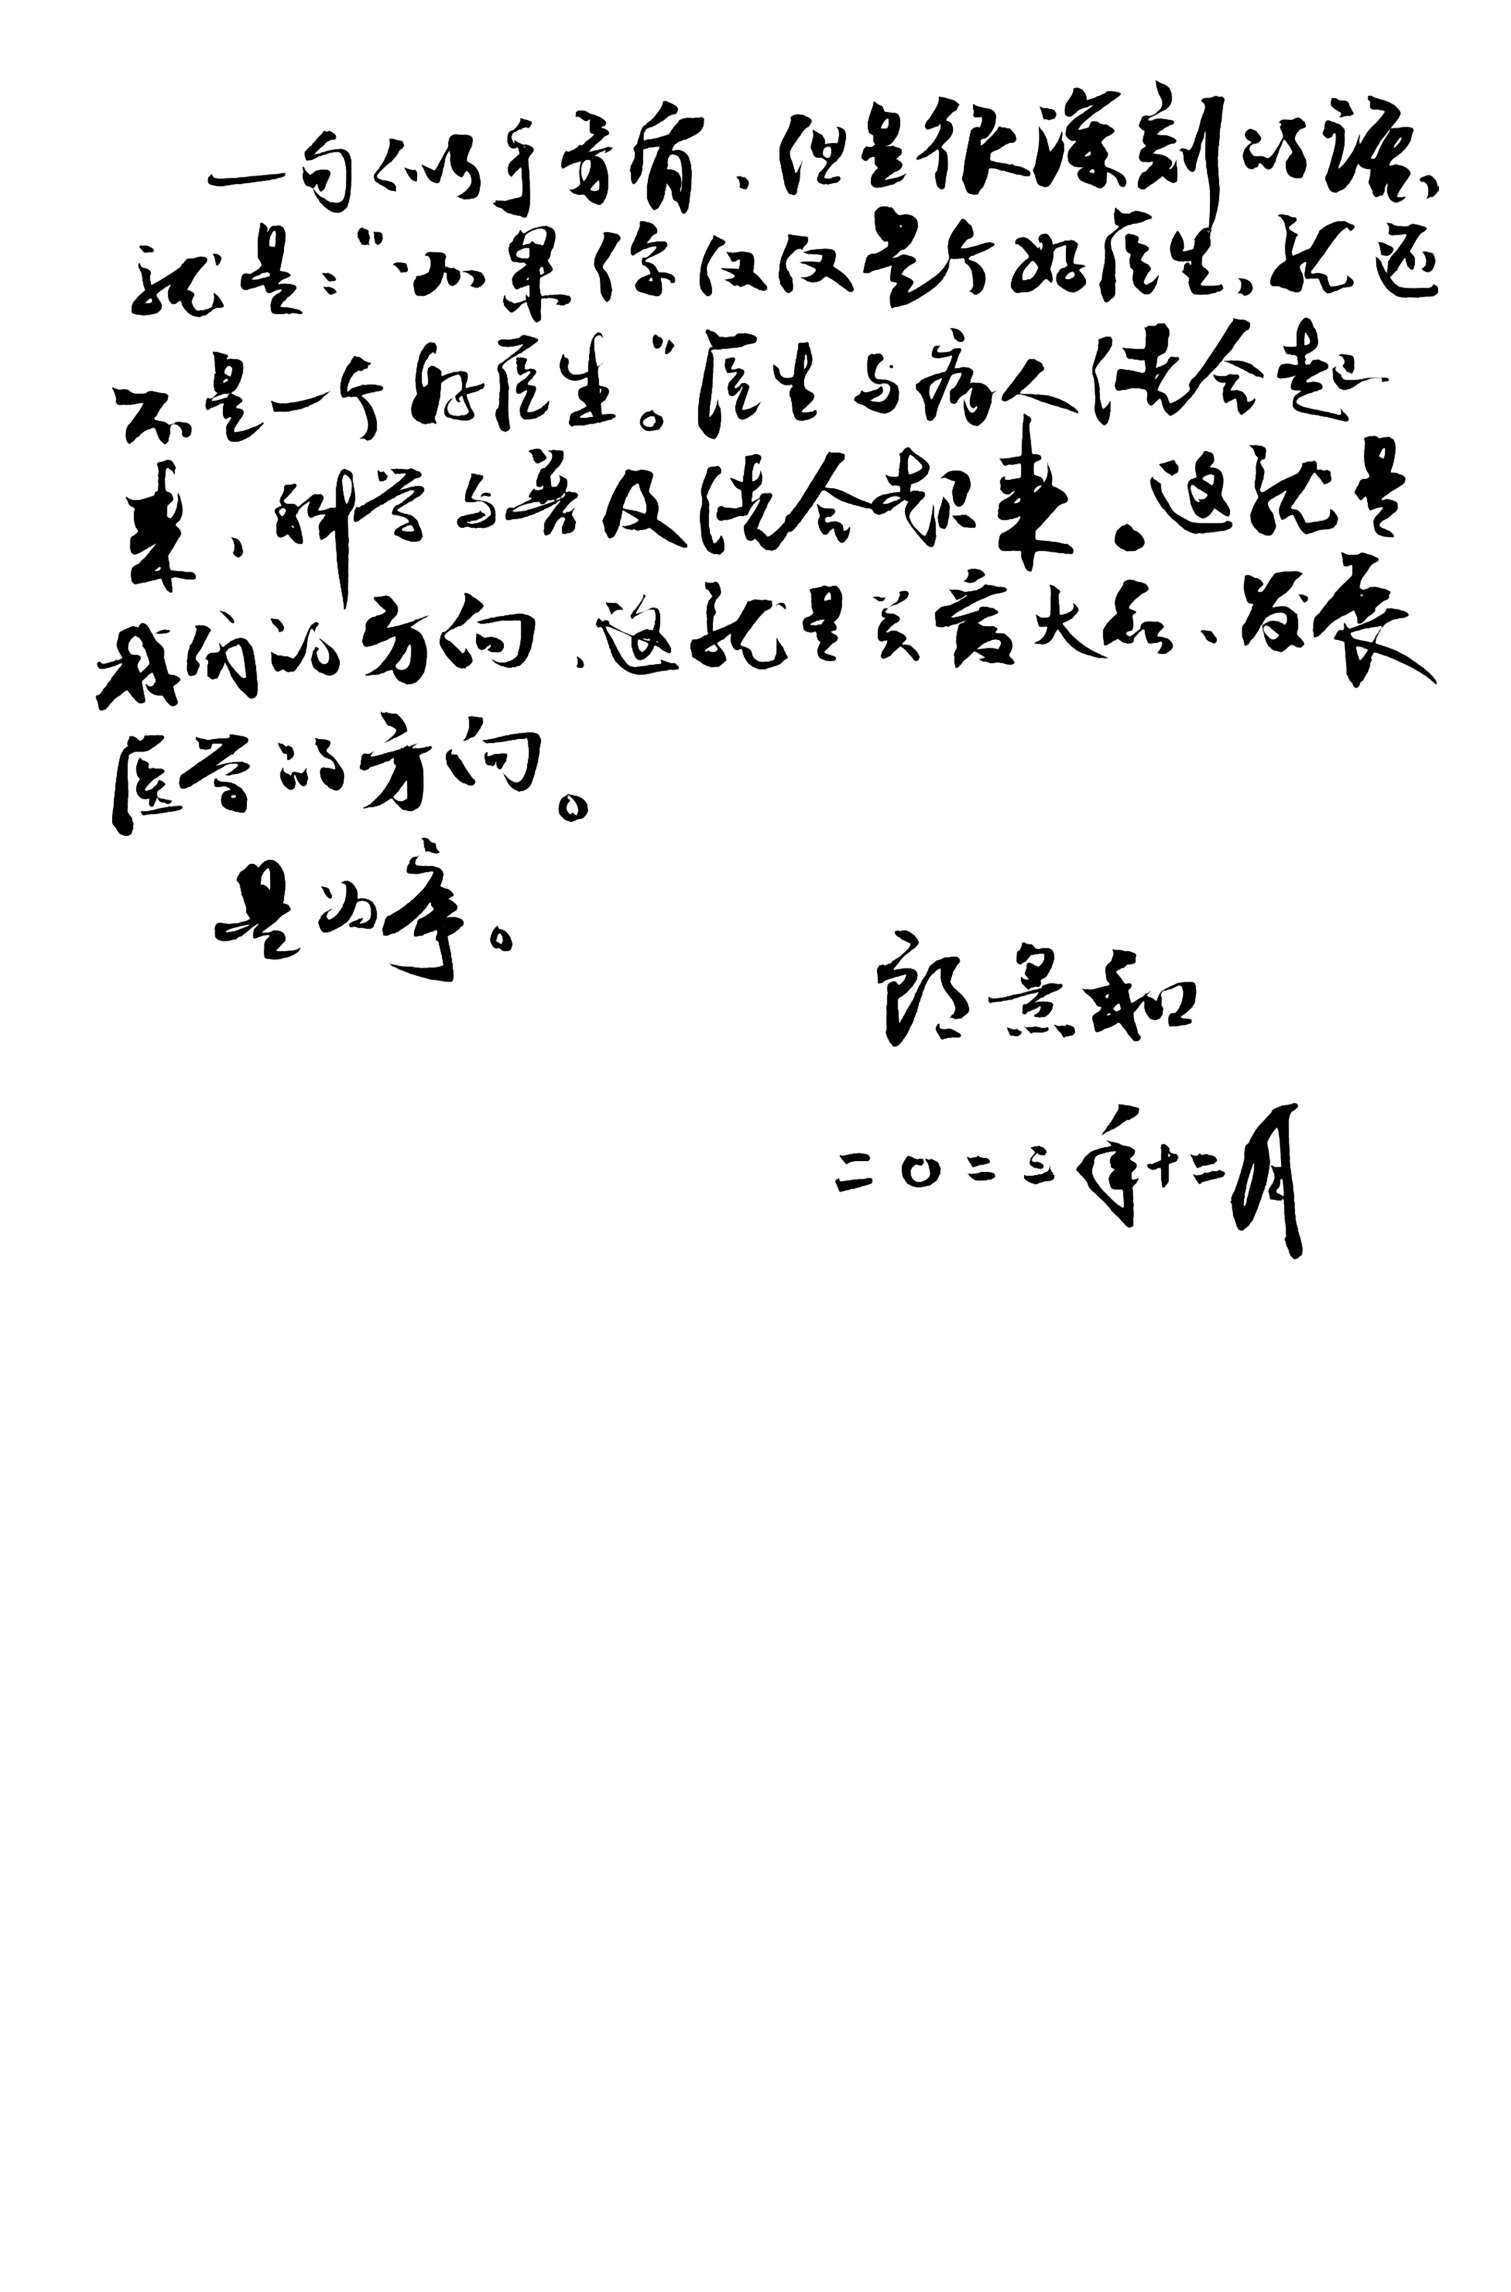 一句似乎方背、但是很深刻的话、
就是：“如果你仅仅是个好医生、就还
不是一个好医生。”医生与病人结合起
来、科学与普及结合起来。这就是
我们的方向、这就是关爱大众、发展
医学的方向。
是为序。
郎景和
二〇二三年十二月